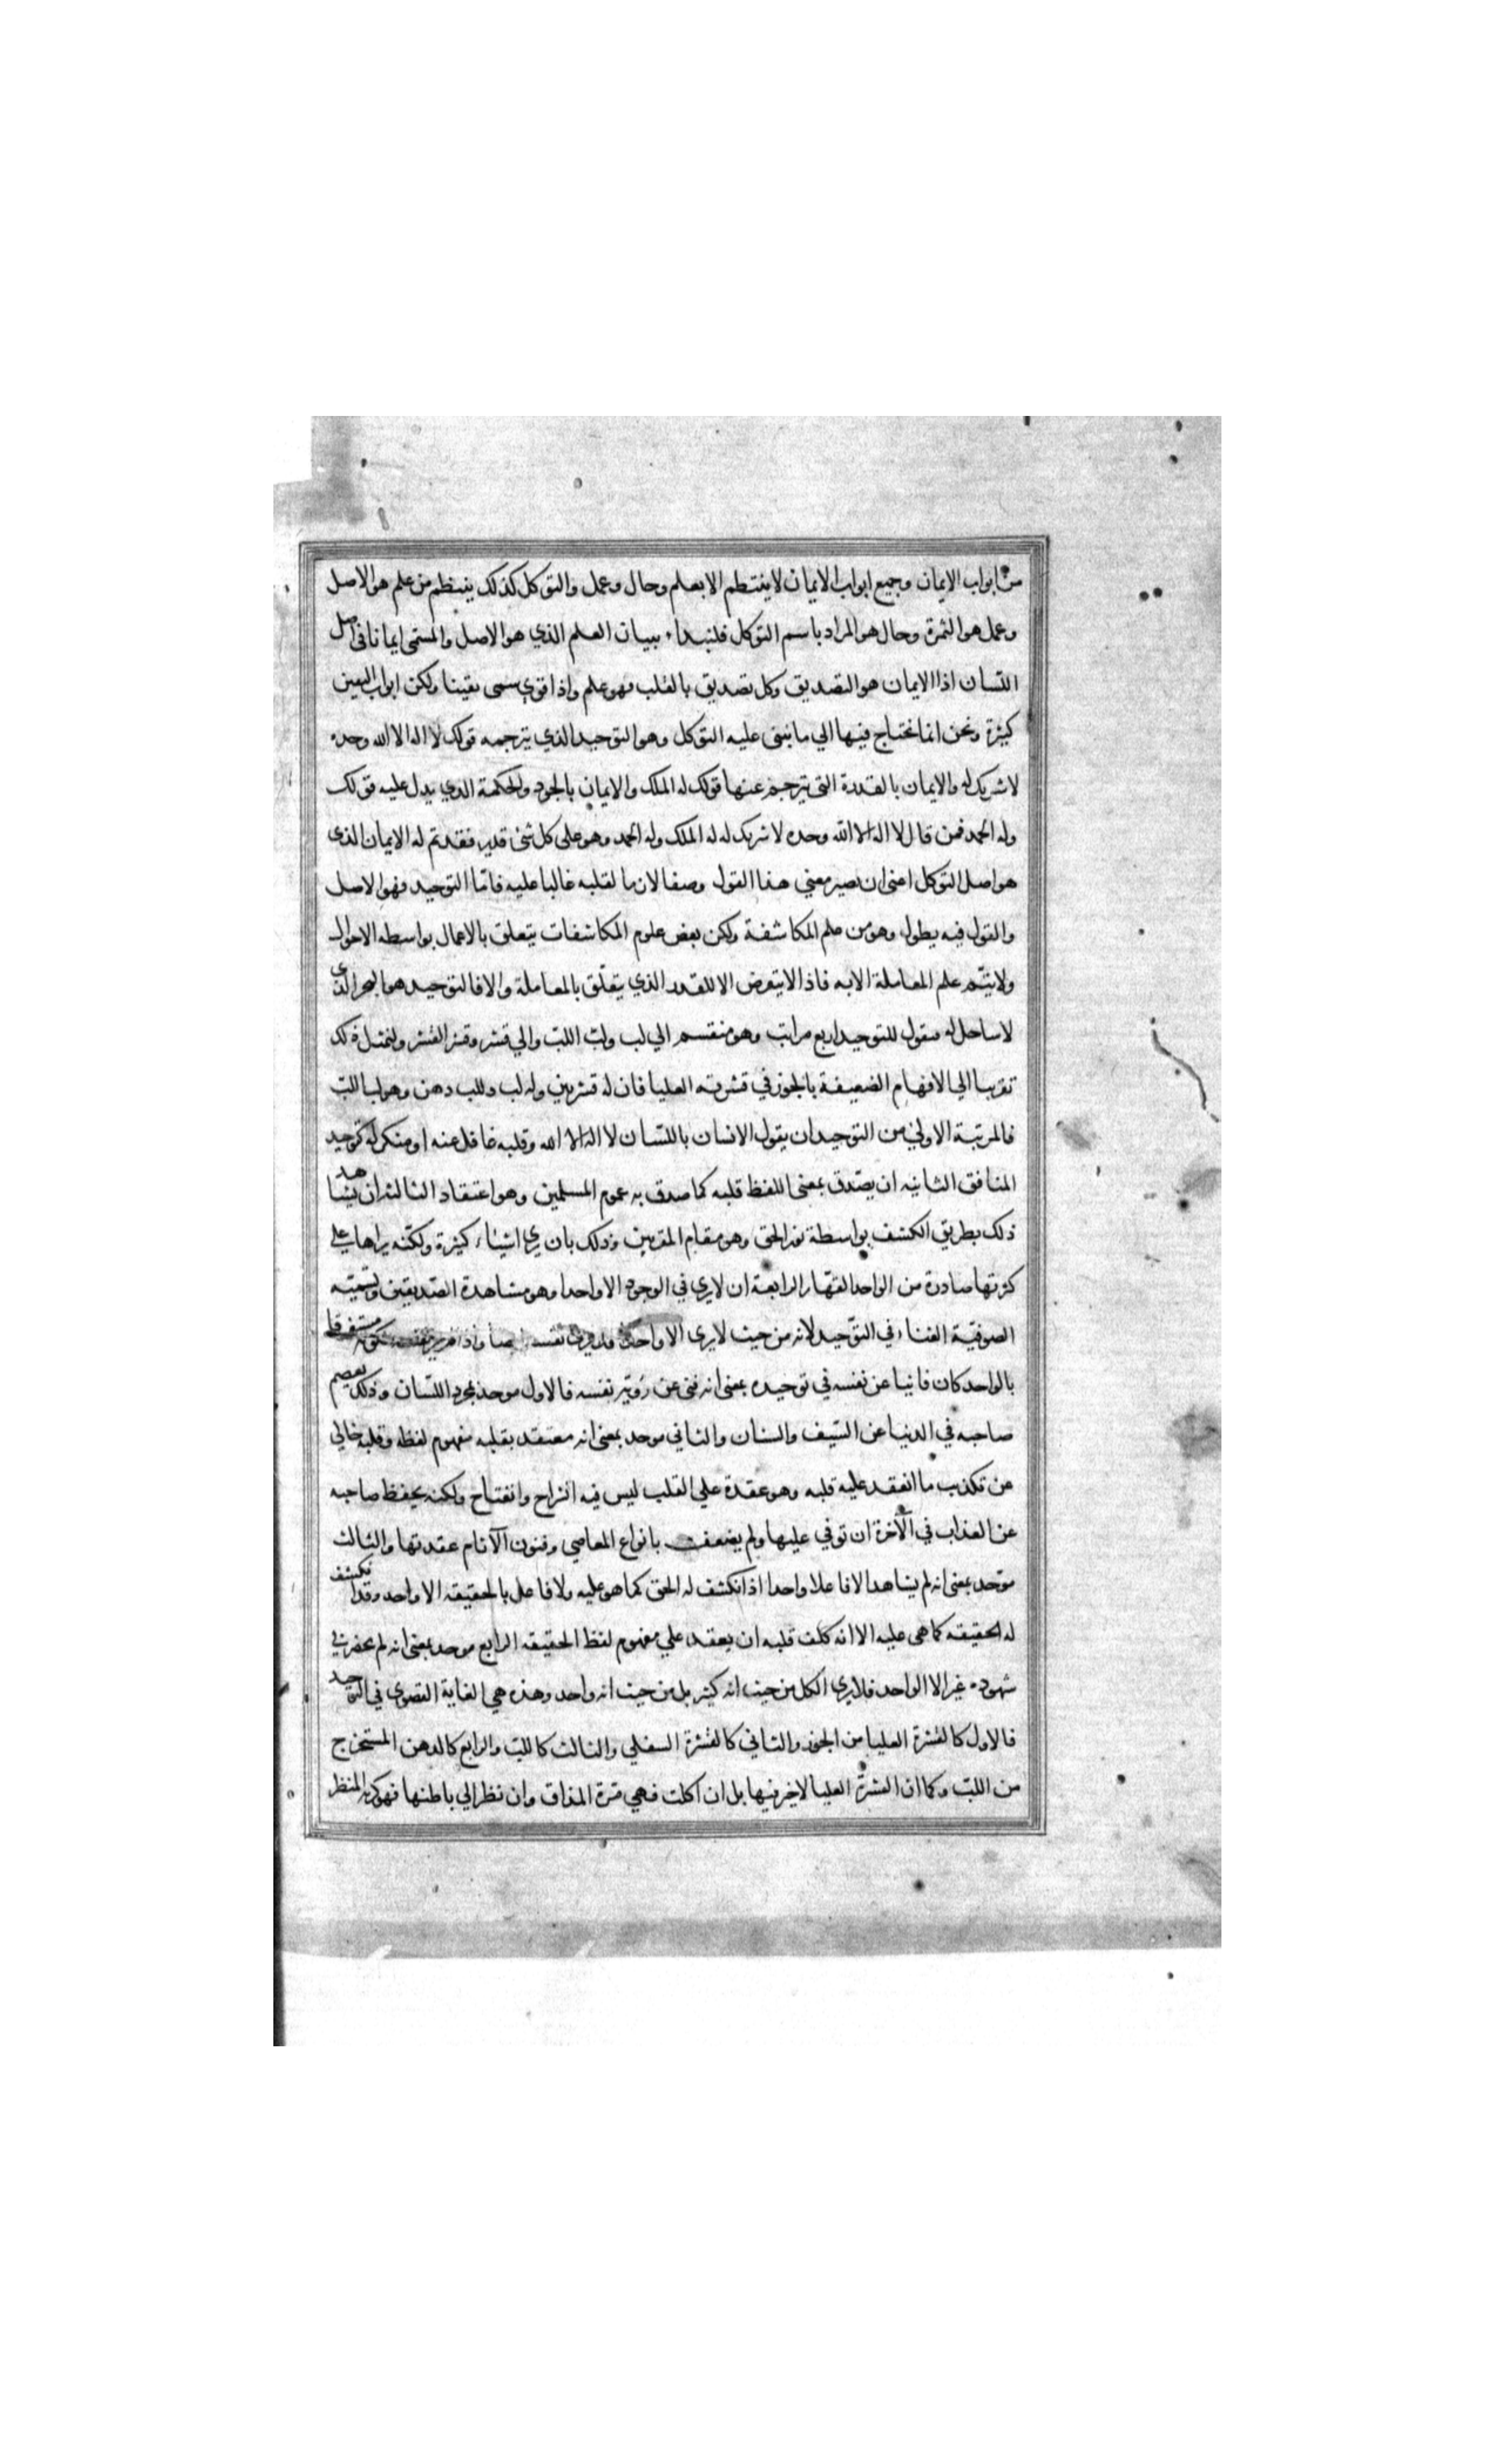 من ابواب الايمان وجميع ابواب الايمان لا ينتظم الا بعلم وحال وعمل والتوكل كذلك ينتظم من علم هو الاصل
وعمل هو الثمرة وحال هو المراد باسم التوكل فلنبداء ببيان العلم الذي هو الاصل والمسمى ايمانا في اصل
اللسان اذ الايمان هو التصديق وكل تصديق بالقلب فهو علم واذا قوي سمى يقينا ولكن ابواب اليقين
كثيرة ونحن انما نحتاج فيها الي ما نبنى عليه التوكل وهو التوحيد الذي يترجمه قولك لا اله الا الله وحده
لا شريك له والايمان بالقدرة التى يترجم عنها قولك له الملك والايمان بالجود والحكمة الذي يدل عليه قولك
وله الحمد فمن قال لا اله الا الله وحده لا شريك له له الملك وله الحمد وهو على كل شئ قدير فقد تم له الايمان الذى
هو اصل التوكل اعنى ان يصير معني هذا القول وصفا لازما لقلبه غالبا عليه فامّا التوحيد فهو الاصل
والقول فيه يطول وهو من علم المكاشفة ولكن بعض علوم المكاشفات يتعلق بالاعمال بواسطه الاحوال
ولا يتم علم المعاملة الا به فاذا لا يتعرض الا للقدر الذي يتعلّق بالمعاملة والا فالتوحيد هو البحر الذي
لا ساحل له فنقول للتوحيد اربع مراتب وهو منقسم الي لب ولبّ اللبّ والي قشر وقشر القشر ولنمثل ذلك
تقريبا الي الافهام الضعيفة بالجوز في قشرته العليا فان له قشرين وله لب وللب دهن وهو لب اللبّ
فالمرتبة الاولي من التوحيد ان يقول الانسان باللسان لا اله الا الله وقلبه غافل عنه او منكر له كتوحيد
المنافق الثانيه ان يصدّق بمعنى اللفظ قلبه كما صدق به عموم المسلمين وهو اعتقاد الثالثة ان يشاهد
ذلك بطريق الكشف بواسطة نور الحق وهو مقام المقربين وذلك بان يري اشياء كثيرة ولكنّه يراها على
كثرتها صادرة من الواحد القهّار الرابعة ان لا يري في الوجود الا واحدا وهو مشاهدة الصّديقين وتسمّيه
الصوفيّة الفناء في التوّحيد لانه من حيث لا يرى الا واحدا فلا يري نفسه ايضا واذا لم ير نفسه لكونه مستغرقا
بالواحد كان فانيا عن نفسه في توحيده بمعنى انه فنى عن رؤية نفسه فالاول موحد بمجرد اللسّان وذلك يعصم
صاحبه في الدنيا عن السّيف والسنان والثاني موحد بمعنى انه معتقد بقلبه مفهوم لفظه وقلبه خالي
عن تكذيب ما انعقد عليه قلبه وهو عقدة علي القلب ليس فيه انشراح وانفتاح ولكنه يحفظ صاحبه
عن العذاب في الآخرة ان توفي عليها ولم يضعف بانواع المعاصي وفنون الآثام عقدتها والثالث
موّحد بمعنى انه لم يشاهد الا فاعلا واحدا اذ انكشف له الحق كما هو عليه ولا فاعل بالحقيقه الا واحد وقد انكشف
له الحقيقه كما هى عليه الا انه كلف قلبه ان يعقد علي مفهوم لفظ الحقيقه الرابع موحد بمعنى انه لم يحضر في
شهوده غير الا الواحد فلا يري الكل من حيث انه كثير بل من حيث انه واحد وهذه هي الغاية القصوى في التوحيد
فالاول كالقشرة العليا من الجوز والثاني كالقشرة السفلي والثالث كاللبّ والرابع كالدهن المستخرج
من اللبّ وكما ان القشرة العليا لا خير فيها بل ان اكلت فهي مرّة المذاق وان نظر الي باطنها فهو كريه المنظر